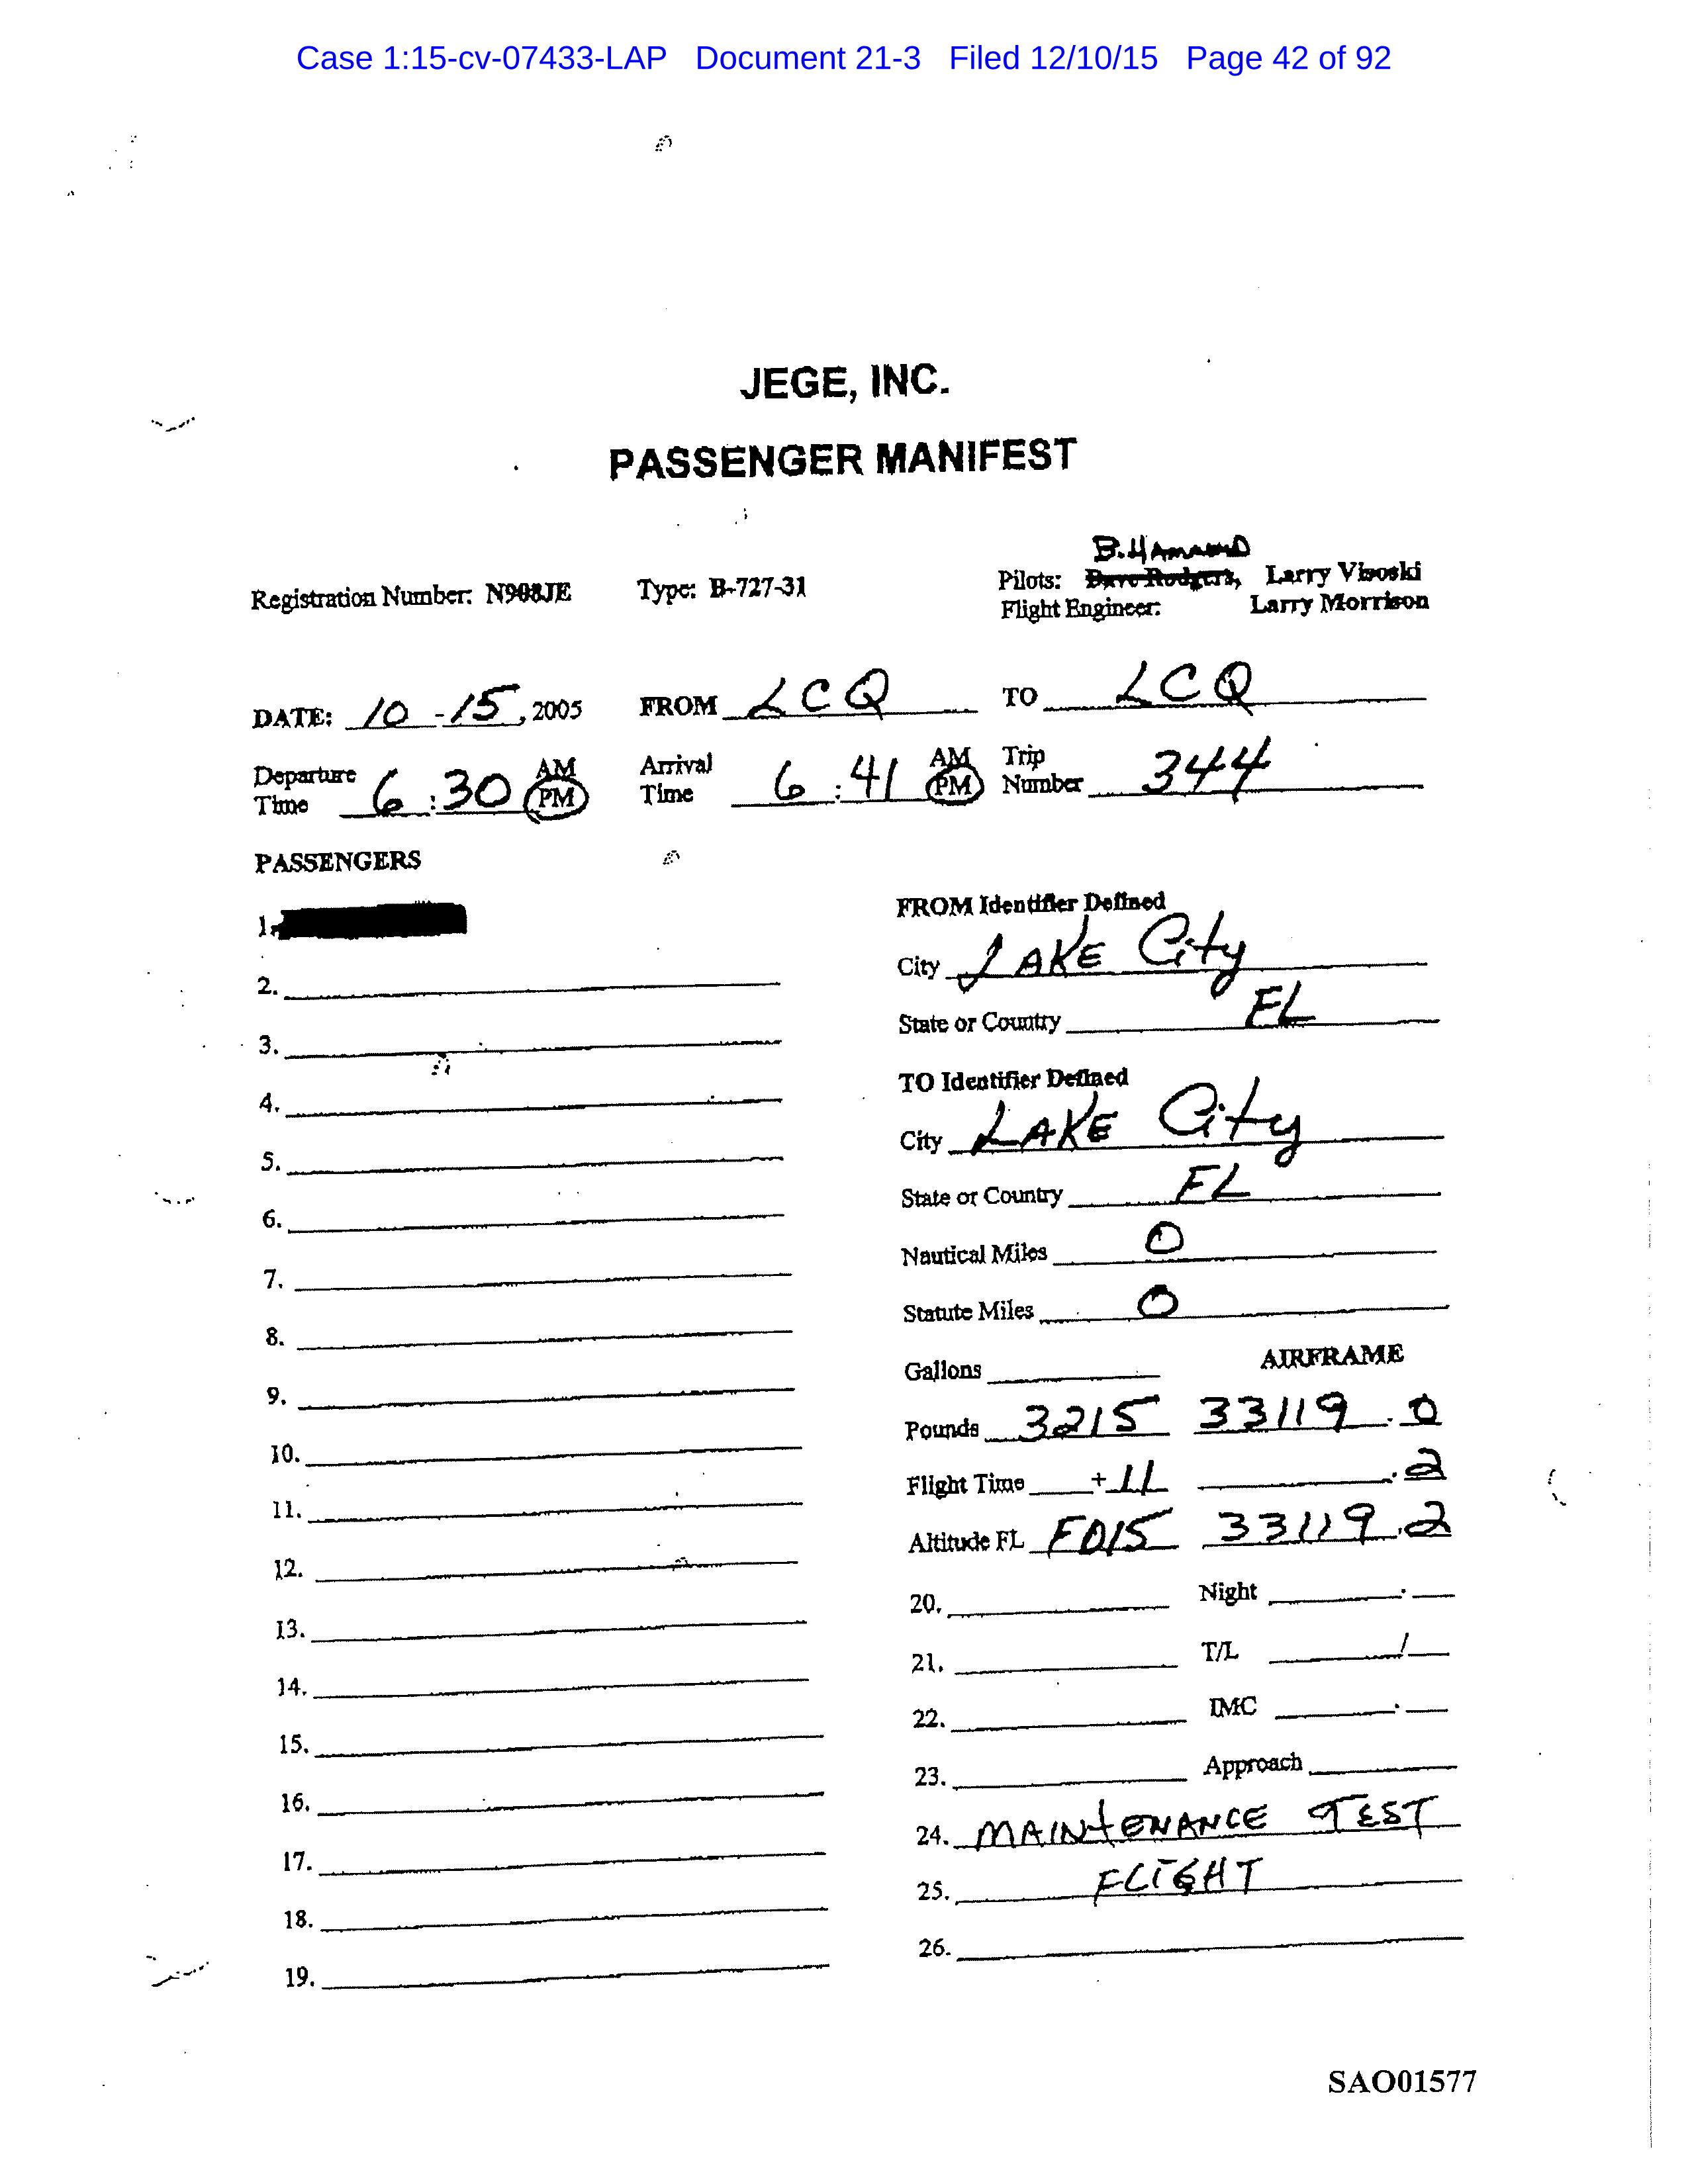 Case 1:15-cv-07433-LAP Document 21-3 Filed 12/10/15 Page 42 of 92
JEGE, INC.
PASSENGER MANIFEST
B. HAMMOND
Registration Number: N908JE Type: B-727-31 Pilots: Dave Rodgers, Larry Visoski
Flight Engineer: Larry Morrison
DATE: 10 - 15, 2005 FROM LCQ TO LCQ
Departure Time 6:30 AM PM Arrival Time 6:41 AM PM Trip Number 344
PASSENGERS
1.
FROM Identifier Defined
City LAKE City
2.
State or Country FL
3.
TO Identifier Defined
4.
City LAKE City
5.
State or Country FL
6.
Nautical Miles 0
7.
Statute Miles 0
8.
Gallons AIRFRAME
9.
Pounds 3215 33119.0
10.
Flight Time + 11 .2
11.
Altitude FL F015 33119.2
12.
20. Night .
13.
21. T/L /
14.
22. IMC .
15.
23. Approach
16.
24. MAINTENANCE TEST
17.
25. FLIGHT
18.
26.
19.
SAO01577